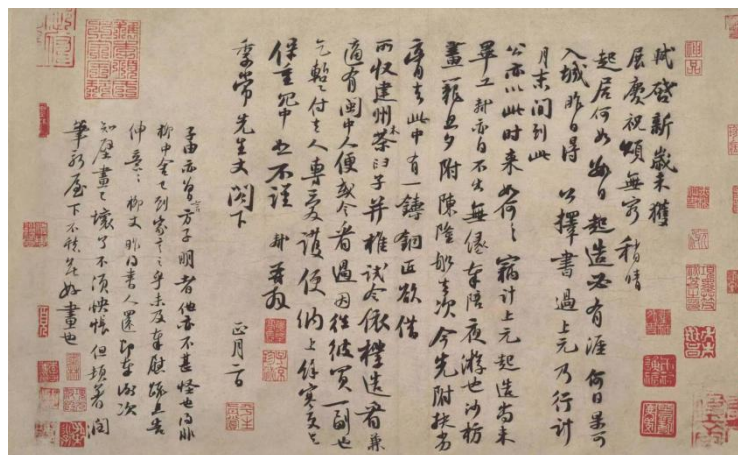 軾啓新歲未獲
展慶祝頌無窮稍晴
起居何如數日起造必有涯何日果可
入城昨日得公擇書過上元乃行計
月末間到此
公亦以此時來如何々竊計上元起造尚未
畢工軾亦自不出無緣奉陪夜遊也沙枋
畫籠旦夕附陳隆船去次今先附扶劣
膏去此中有一鑄銅匠欲借
所收建州木茶臼子并椎試令依樣造看兼
適有閩中人便或令看過因往彼買一副也
乞暫付去人專愛護便納上餘寒更乞
保重冗中恕不謹 軾再拜
季常先生丈閣下
正月二日
子由亦曾言方子明者他亦不甚怪也得非
柳中舍已到家言之乎未及奉慰疏且告
伸意々柳丈昨得書人還即奉謝次
知壁畫已壞了不須怏悵但頓著潤
筆新屋下不愁無好畫也